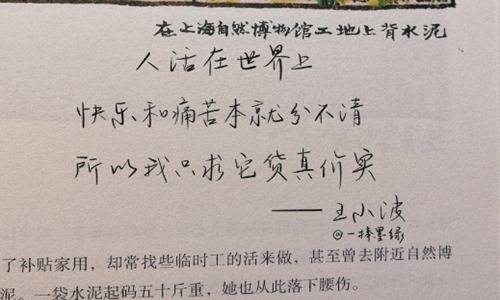 在上海自然博物馆工地上背水泥
人活在世界上
快乐和痛苦本就分不清
所以我只求它货真价实
——王小波
@一捧墨绿
了补贴家用，却常找些临时工的活来做，甚至曾去附近自然博
泥。一袋水泥起码五十斤重，她也从此落下腰伤。